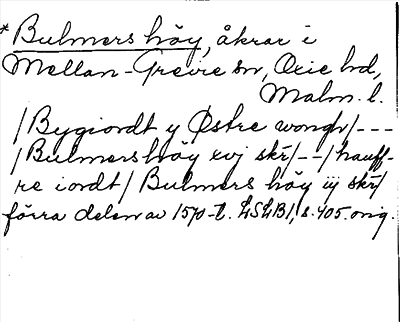 * Bulmers höy, åkrar i
Mellan-Greire sn, Oxie hd,
Malm. l.
/Bygiordt y Østre wongh/---
/Bulmershöy xvj skr/--/hauff-
re iordt/ Bulmers höy iij skr/
förra delen av 1570-t. LSLB1, s. 405. orig.